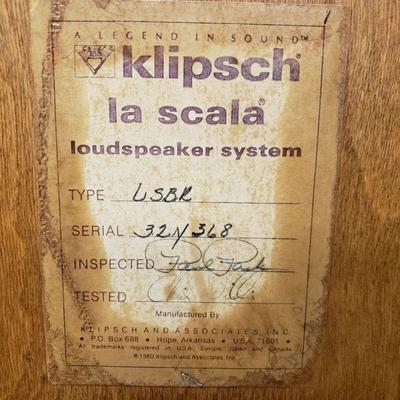 A LEGEND IN SOUND™
klipsch®
la scala®
loudspeaker system
TYPE LSBR
SERIAL 32V368
INSPECTED
TESTED
Manufactured By
KLIPSCH AND ASSOCIATES, INC.
• P.O. Box 688 • Hope, Arkansas • U.S.A. 71801 •
All trademarks registered in U.S.A., Europe, Japan and Canada
©1980 Klipsch and Associates, Inc.